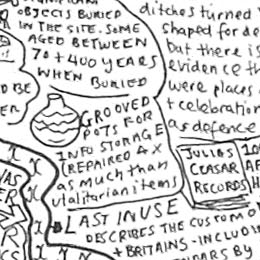 OBJECTS BURIED
IN THE SITE. SOME
AGED BETWEEN
70 + 400 YEARS
WHEN BURIED
ditches turned
shaped for de
but there is
evidence th
were places
+ celebration
as defence
D BE
ER
GROOVED
POTS FOR
INFO STORAGE
(REPAIRED 4X
as much than
utalitarian items)
JULIUS
CEASAR
RECORDS
LAST IN USE
DESCRIBES THE CUSTOM O
+ BRITAINS - INCLUDIN